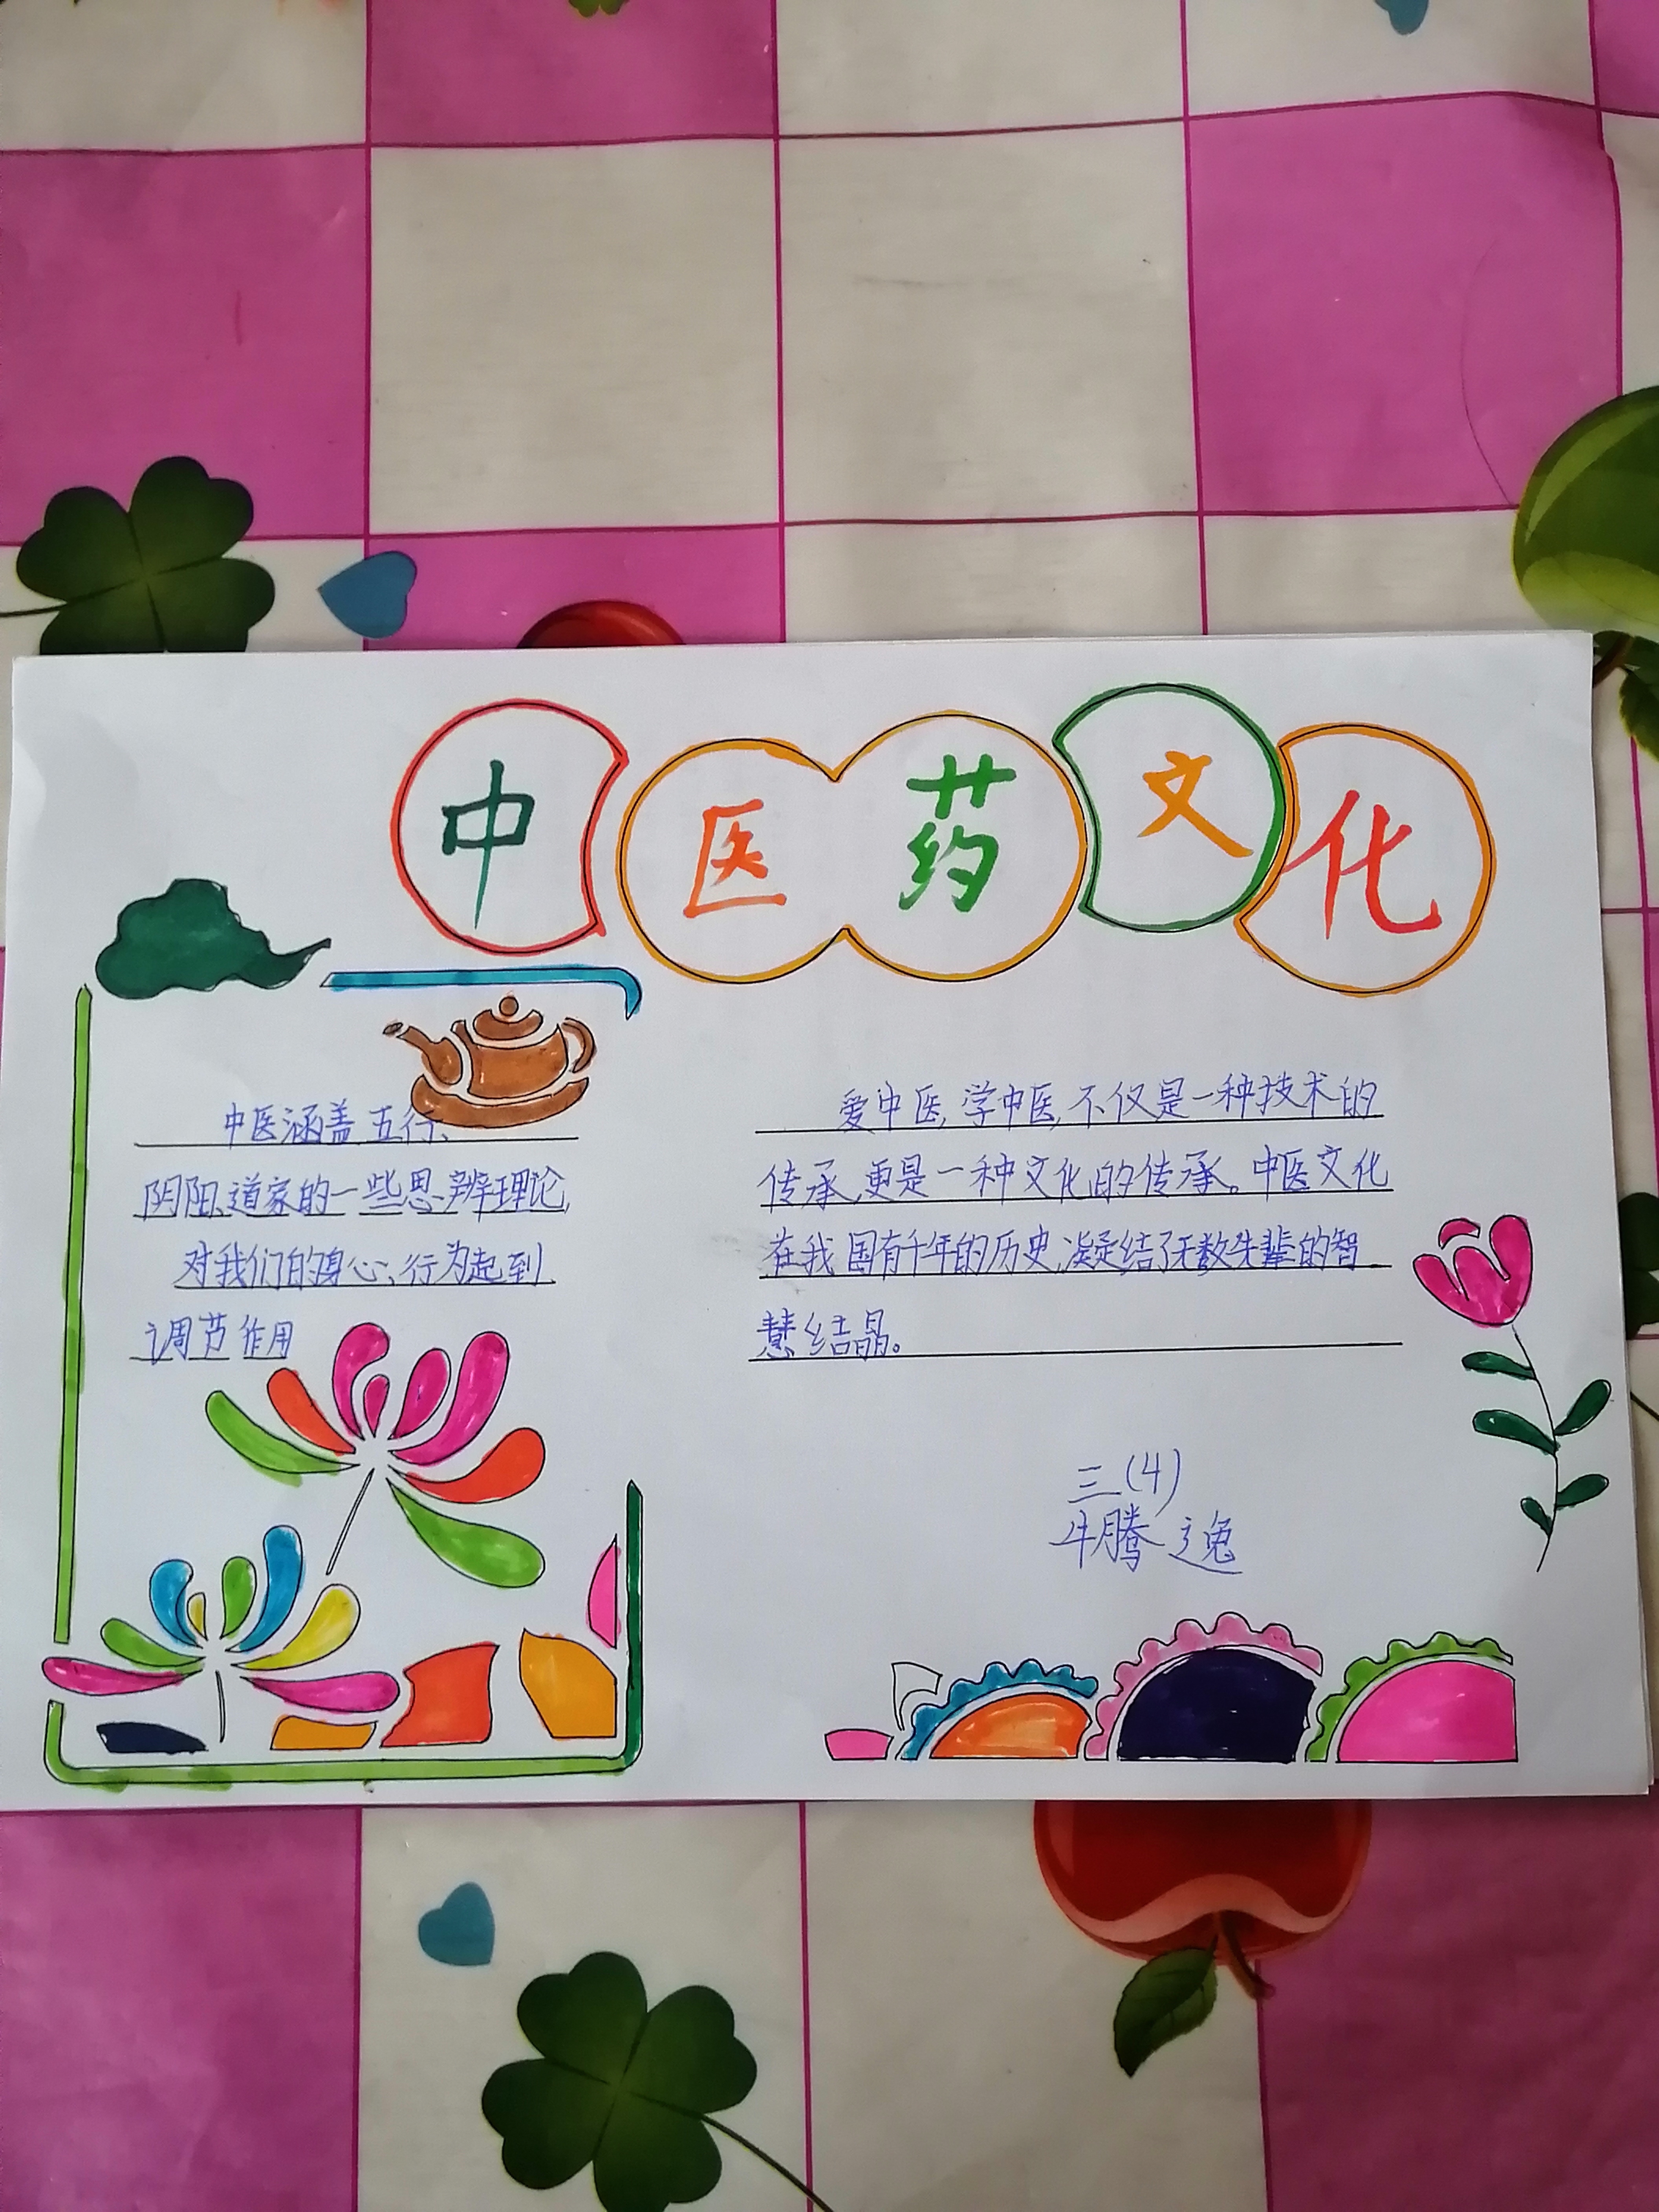 中医药文化
中医涵盖五行、
阴阳、道家的一些思辨理论,
对我们的身心、行为起到
调节作用
爱中医,学中医,不仅是一种技术的
传承,更是一种文化的传承。中医文化
在我国有千年的历史,凝结了无数先辈的智
慧结晶。
三(4)
牛腾逸